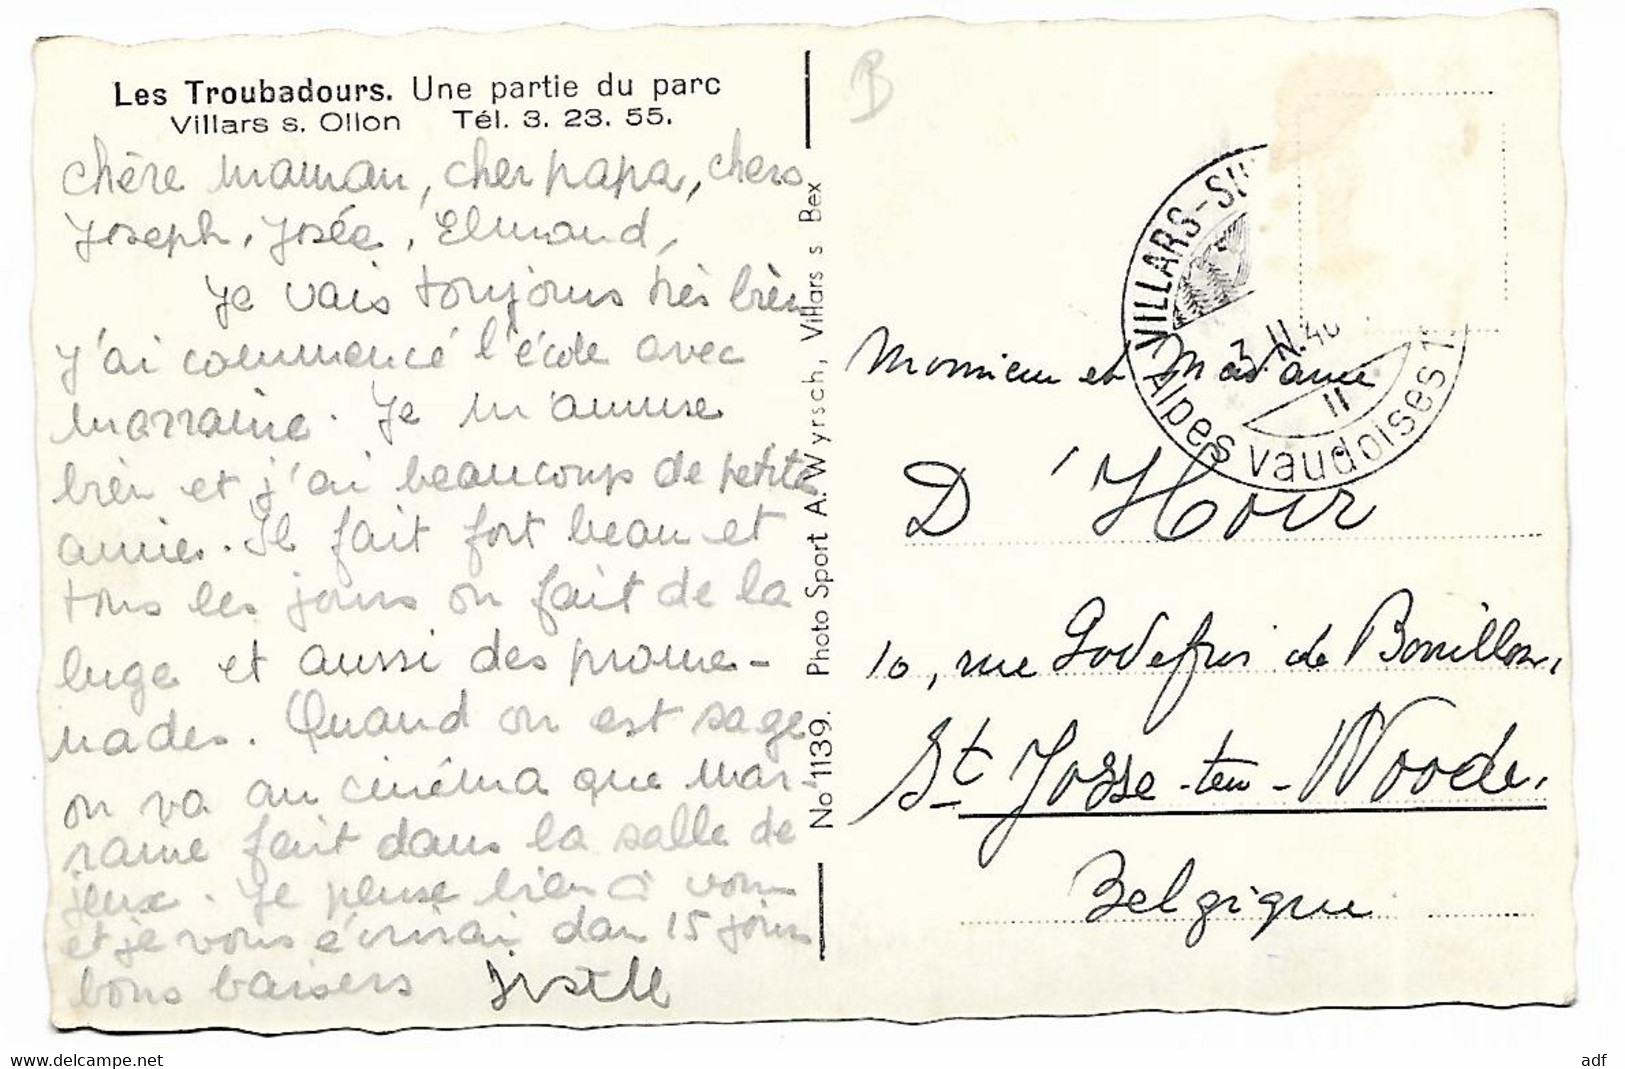 Les Troubadours. Une partie du parc
Villars s. Ollon Tél. 3. 23. 55.
chère maman, cher papa, chers
Joseph, Josée, Edmond,
Je vais toujours très bien
j'ai commencé l'école avec
marraine. Je m'amuse
bien et j'ai beaucoup de petites
amies. Il fait fort beau et
tous les jours on fait de la
luge et aussi des prome-
nades. Quand on est sage
on va au cinéma que mar-
raine fait dans la salle de
jeux. Je pense bien à vous
et je vous écrirai dans 15 jours
bons baisers
No 1139. Photo Sport A. Wyrsch, Villars s Bex
B
VILLARS-SU
3. II. 4
Alpes Vaudoises 1
Monsieur et Madame
D'Hoir
10, rue Godefroi de Bouillon,
St Josse-ten-Noode.
Belgique
adf